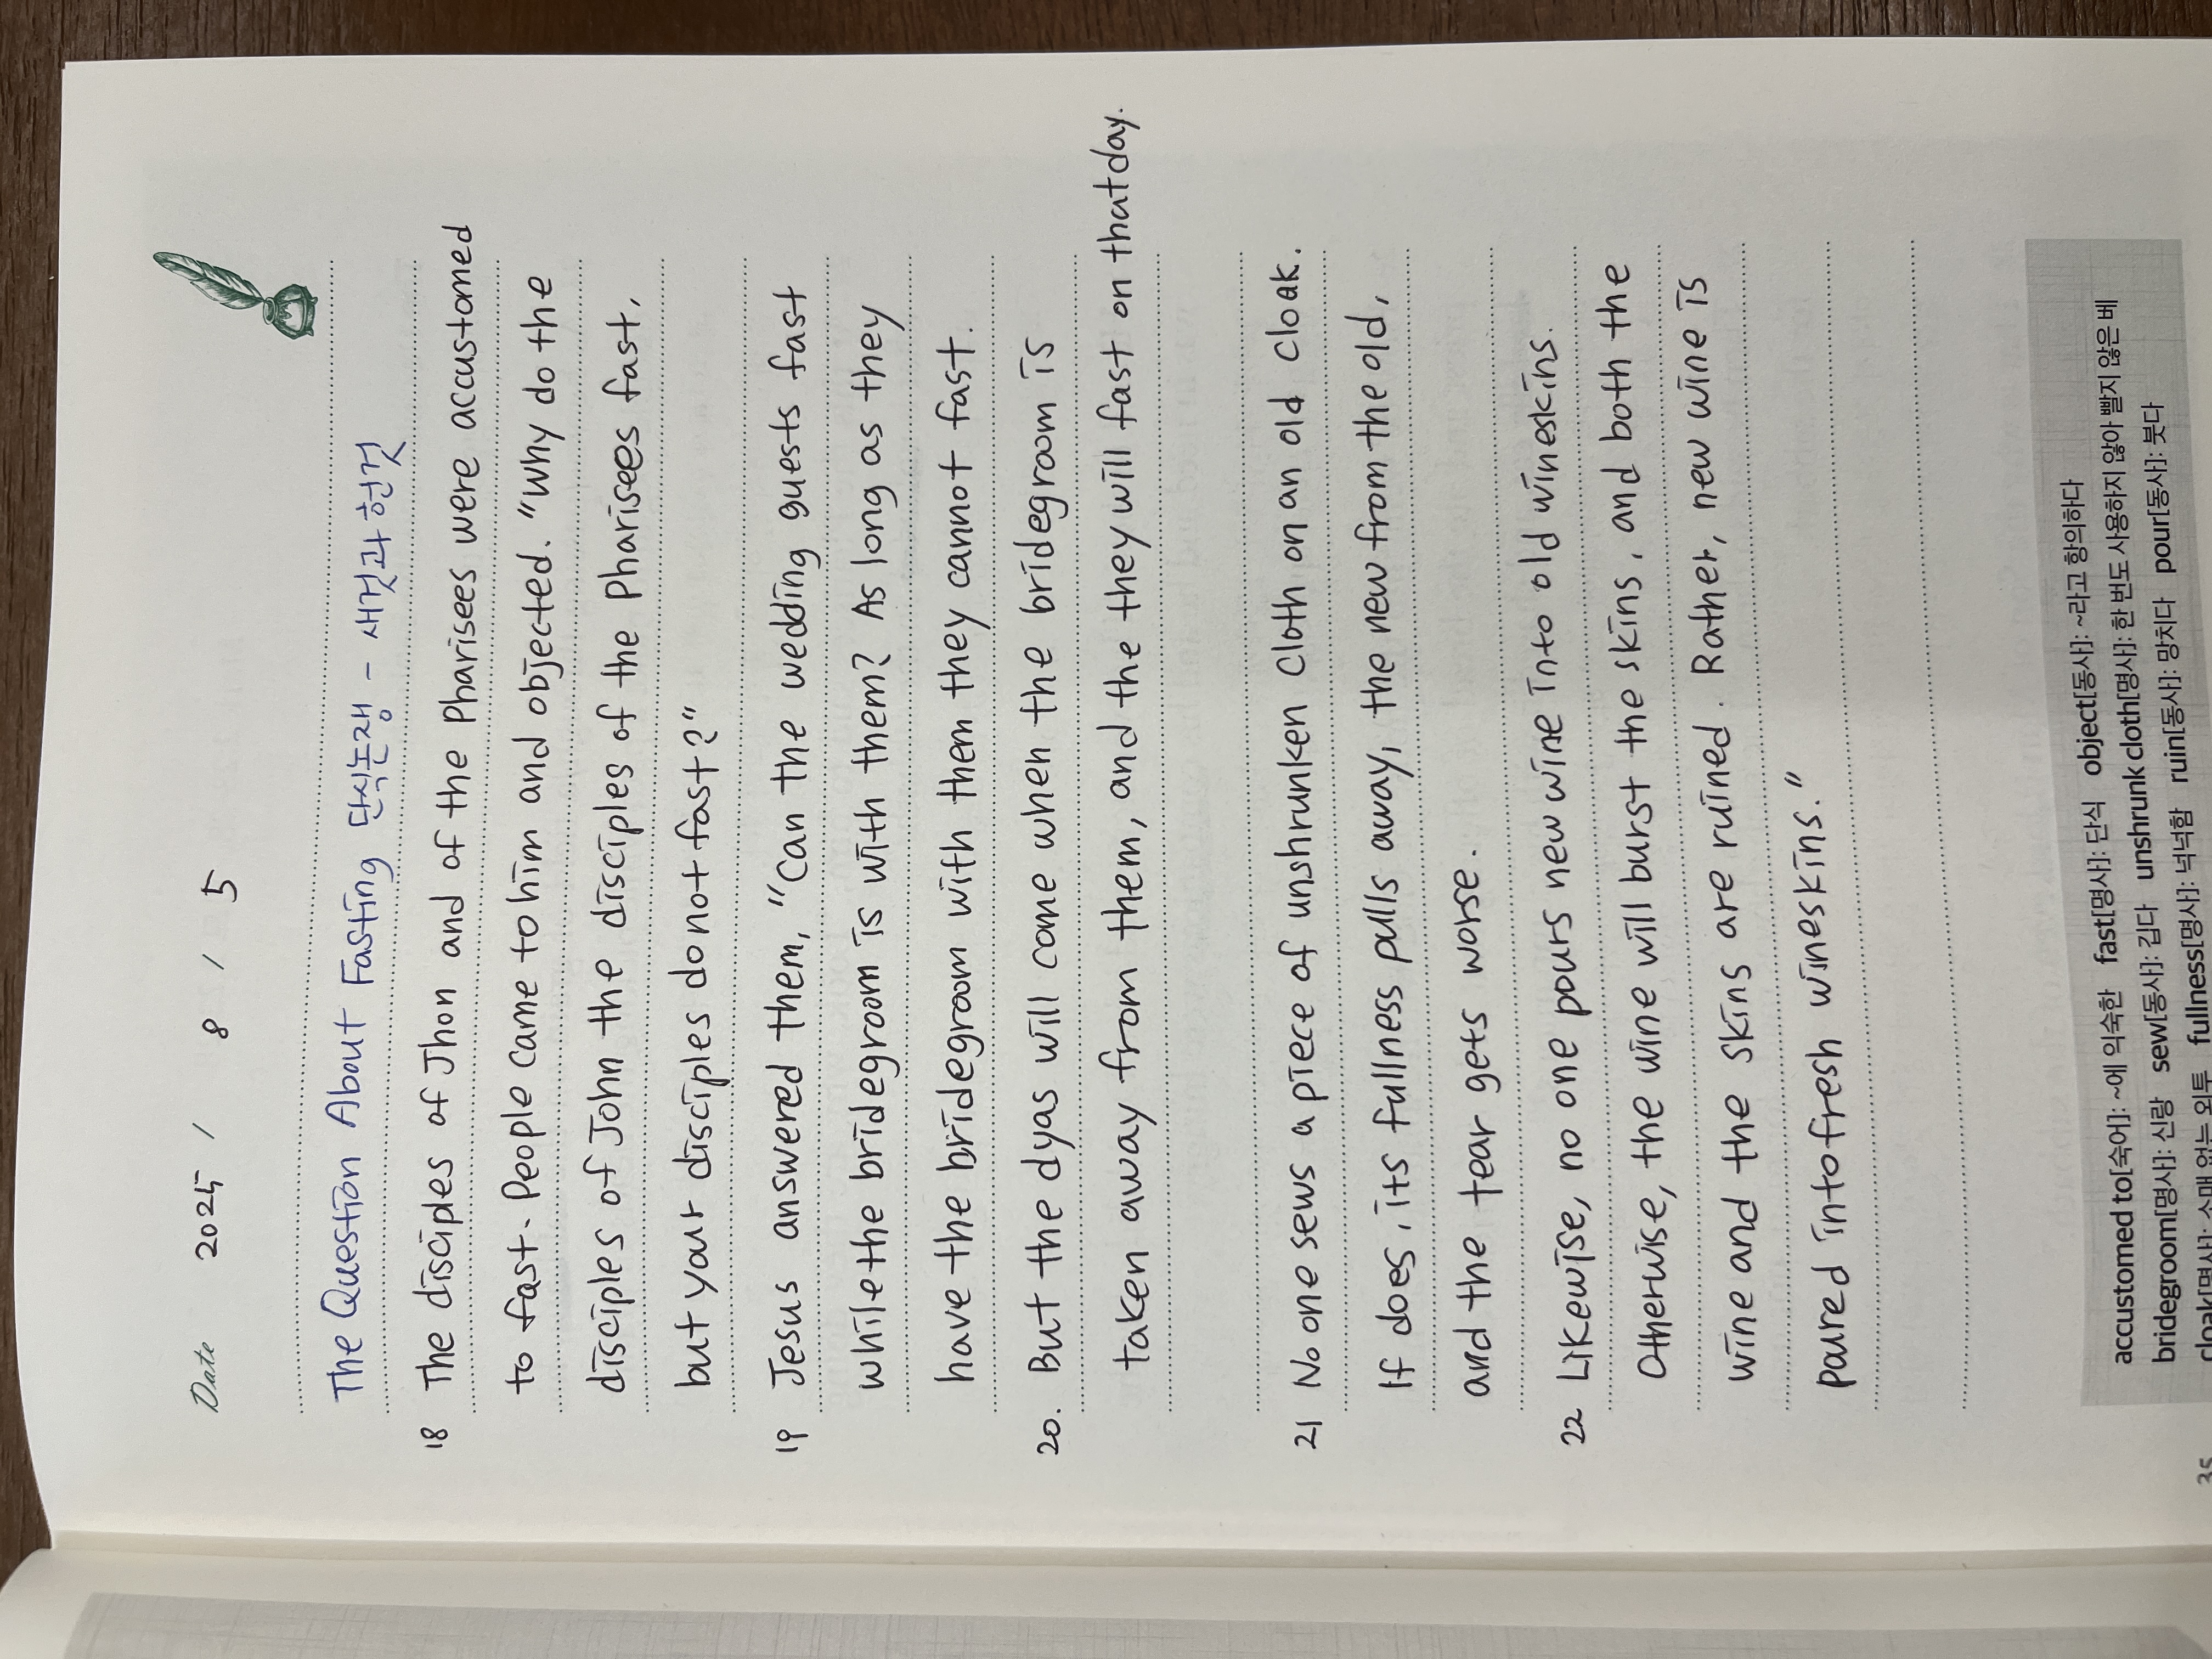 Date 2025 / 8 / 5
The Question About Fasting 단식논쟁 - 새것과 헌것
18 The disciples of Jhon and of the Pharisees were accustomed
to fast. People came to him and objected. "Why do the
disciples of John the disciples of the Pharisees fast,
but your disciples do not fast?"
19 Jesus answered them, "Can the wedding guests fast
while the bridegroom is with them? As long as they
have the bridegroom with them they cannot fast.
20. But the dyas will come when the bridegroom is
taken away from them, and the they will fast on that day.
21 No one sews a piece of unshrunken cloth on an old cloak.
If does, its fullness pulls away, the new from the old,
and the tear gets worse.
22 Likewise, no one pours new wine into old wineskins.
Otherwise, the wine will burst the skins, and both the
wine and the skins are ruined. Rather, new wine is
poured into fresh wineskins."
accustomed to[숙어]: ~에 익숙한 fast[명사]: 단식 object[동사]: ~라고 항의하다
bridegroom[명사]: 신랑 sew[동사]: 깁다 unshrunk cloth[명사]: 한 번도 사용하지 않아 빨지 않은 베
cloak[명사]: 소매 없는 외투 fullness[명사]: 넉넉함 ruin[동사]: 망치다 pour[동사]: 붓다
35